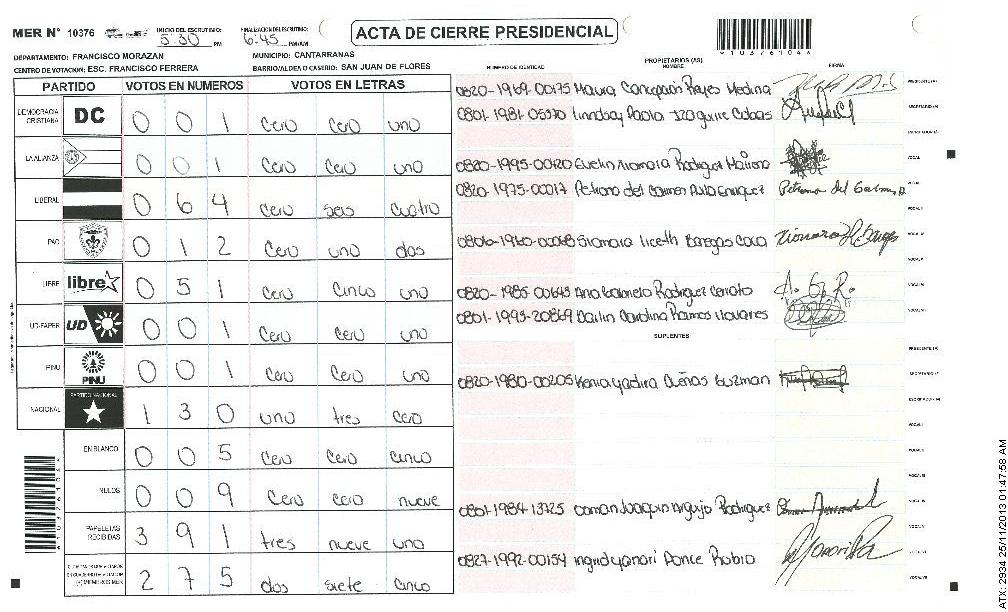 MER N° 10376
INICIO DEL ESCRUTINIO:
5:30 PM
FINALIZACION ESCRUTINIO:
6:45 PM/AM
ACTA DE CIERRE PRESIDENCIAL
DEPARTAMENTO: FRANCISCO MORAZAN
MUNICIPIO: CANTARRANAS
CENTRO DE VOTACION: ESC. FRANCISCO FERRERA
BARRIO/ALDEA O CASERIO: SAN JUAN DE FLORES
PARTIDO VOTOS EN NUMEROS VOTOS EN LETRAS
DEMOCRACIA CRISTIANA DC 0 0 1 cero cero uno
LA ALIANZA 0 0 1 cero cero uno
LIBERAL 0 6 4 cero seis cuatro
PAC 0 1 2 cero uno dos
LIBRE libre 0 5 1 cero cinco uno
UD-FAPER UD 0 0 1 cero cero uno
PINU PINU 0 0 1 cero cero uno
NACIONAL PARTIDO NACIONAL 1 3 0 uno tres cero
EN BLANCO 0 0 5 cero cero cinco
NULOS 0 0 9 cero cero nueve
PAPELETAS RECIBIDAS 3 9 1 tres nueve uno
2 7 5 dos siete cinco
NUMERO DE IDENTIDAD
PROPIETARIOS (AS)
NOMBRE
FIRMA
0820-1969-00175 Maura Concepción Reyes Medina
PRESIDENTE (A)
0801-1981-05370 Lindsay Paola Izaguirre Cobas
SECRETARIO (A)
ESCRUTADOR (A)
0820-1995-00120 Evelin Xiomara Rodriguez
VOCAL I
0820-1975-00017 Petrona del Carmen Avila Enriquez
VOCAL II
VOCAL III
VOCAL IV
0820-1985-00645 Ana Gabriela Rodriguez Cerrato
A. G. R.
VOCAL V
0801-1993-20869 Darlin Carolina Ramos
SUPLENTES
PRESIDENTE (A)
0820-1980-00205 Kenia Yadira Dueñas Guzman
SECRETARIO (A)
ESCRUTADOR (A)
VOCAL I
VOCAL II
VOCAL III
0801-1984-13725 Joaquin Rodriguez
VOCAL IV
VOCAL V
0827-1992-00154 Ingrid Yanori Ponce Rubio
ATX: 2934 25/11/2013 01:47:58 AM